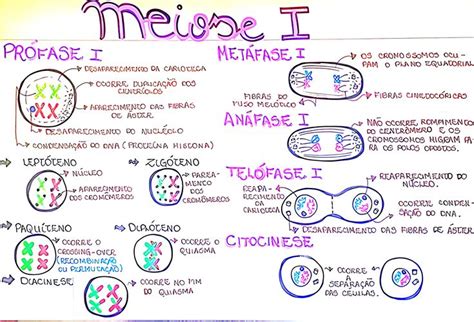 Meiose I
PRÓFASE I
DESAPARECIMENTO DA CARIOTECA
OCORRE DUPLICAÇÃO DOS
CENTRÍOLOS
APARECIMENTO DAS FIBRAS
DE ÁSTER
DESAPARECIMENTO DO NUCLÉOLO
CONDENSAÇÃO DO DNA (PROTEÍNA HISTONA)
LEPTÓTENO
NÚCLEO
APARECIMENTO
DOS CROMÔMEROS
ZIGÓTENO
PAREA-
MENTO
DOS
CROMÔMEROS
PAQUÍTENO
OCORRE O
CROSSING-OVER
(RECOMBINAÇÃO
OU PERMUTAÇÃO)
DIPLÓTENO
OCORRE O
QUIASMA
DIACINESE
OCORRE NO FIM
DO QUIASMA
METÁFASE I
OS CROMOSSOMOS OCU-
PAM O PLANO EQUATORIAL
FIBRAS DO
FUSO MEIÓTICO
FIBRAS CINETOCÓRICAS
ANÁFASE I
NÃO OCORRE ROMPIMENTO
DO CENTRÔMERO E OS
CROMOSSOMOS MIGRAM PARA
OS POLOS OPOSTOS.
TELÓFASE I
REAPA-
RECIMENTO
DA
CARIOTECA
REAPARECIMENTO DO
NÚCLEO.
OCORRE CONDEN-
SAÇÃO DO DNA.
DESAPARECIMENTO DAS FIBRAS DE ÁSTER.
CITOCINESE
OCORRE A
SEPARAÇÃO
DAS CÉLULAS.